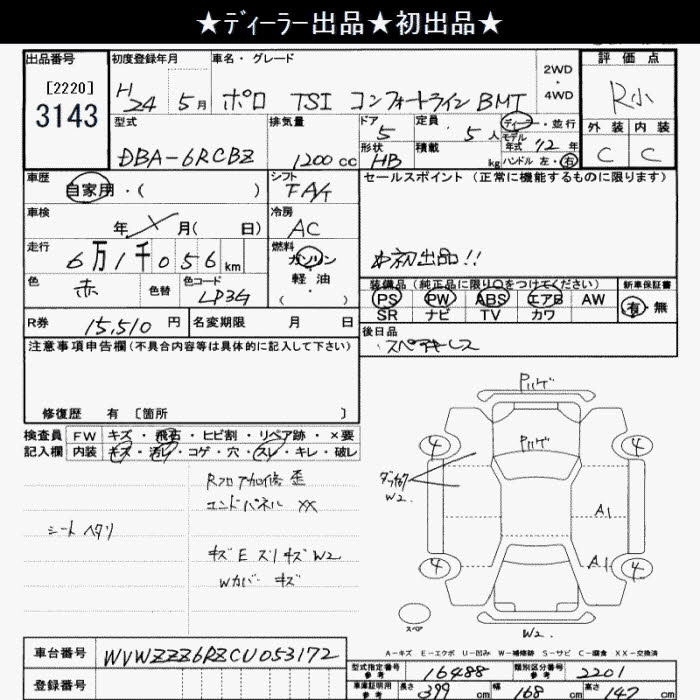 ★ディーラー出品★初出品★
出品番号
[2220]
3143
初度登録年月
H24 5月
車名・グレード
ポロ TSI コンフォートライン BMT
2WD
・
4WD
評価点
R小
外装 内装
C C
型式
DBA-6RCBZ
排気量
1200cc
ドア
5
定員
5人
形状
HB
積載
kg
ディーラー・並行
モデル
年式 12年
ハンドル 左・右
車歴
自家用・( )
シフト
FA/
セールスポイント (正常に機能するものに限ります)
初出品!!
車検
年 月( 日)
冷房
AC
走行
6万1千056km
燃料
ガソリン
軽油
( ・ )
色
赤
色替
色コード
LP3G
装備品(純正品に限り○をつけてください)
PS PW ABS エアB AW
SR ナビ TV カワ
新車保証書
有・無
R券 15,510円
名変期限 月 日
後日品
注意事項申告欄(不具合内容等は具体的に記入して下さい)
修復歴 有 [箇所 ]
検査員
記入欄
FW キズ・飛石・ヒビ割・リペア跡・×要
内装 キズ・汚レ・コゲ・穴・スレ・キレ・破レ
シート ヘタリ
Rフロア 修 歪
エンドパネル XX
キズE スリキズW2
Wカバー キズ
Pハゲ
Pハゲ
4 4
W2
A1
A1
4 4
スペア
W2
A-キズ E-エクボ U-凹み W-補修跡 S-サビ C-腐食 XX-交換済
車台番号 WVWZZZ6RZCU053172
登録番号
型式指定番号
参考
16488
類別区分番号
参考
2201
車庫証明用
参考
長さ 399cm
幅 168cm
高さ 147cm